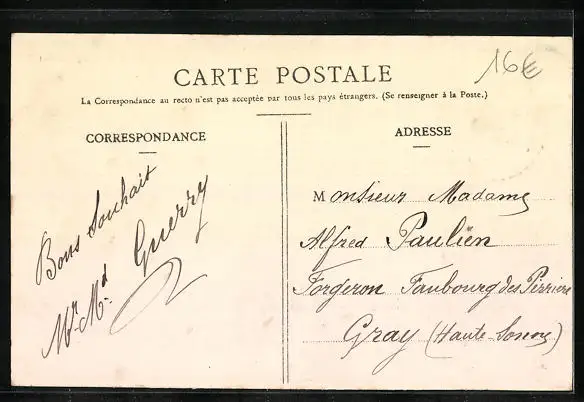 16€
CARTE POSTALE
La Correspondance au recto n'est pas acceptée par tous les pays étrangers. (Se renseigner à la Poste.)
CORRESPONDANCE
Bons Souhait
Mr. Md. Guerry
ADRESSE
Monsieur Madame
Alfred Pauliën
Forgeron Faubourg des Perriere
Gray (Haute-Saone)